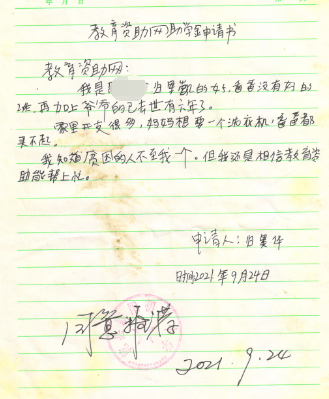 年 月 日
教育资助网助学金申请书
教育资助网:
我是 归黑凯的女儿,爸爸没有好的
班,再加上爷爷的已去世有六年了。
家里开支很多,妈妈想要一个洗衣机,爸爸都
买不起。
我知道贫困的人不至我一个,但我还是相信教育资
助能帮上忙。
申请人:归黑华
时间2021年9月24日
同意
2021.9.24